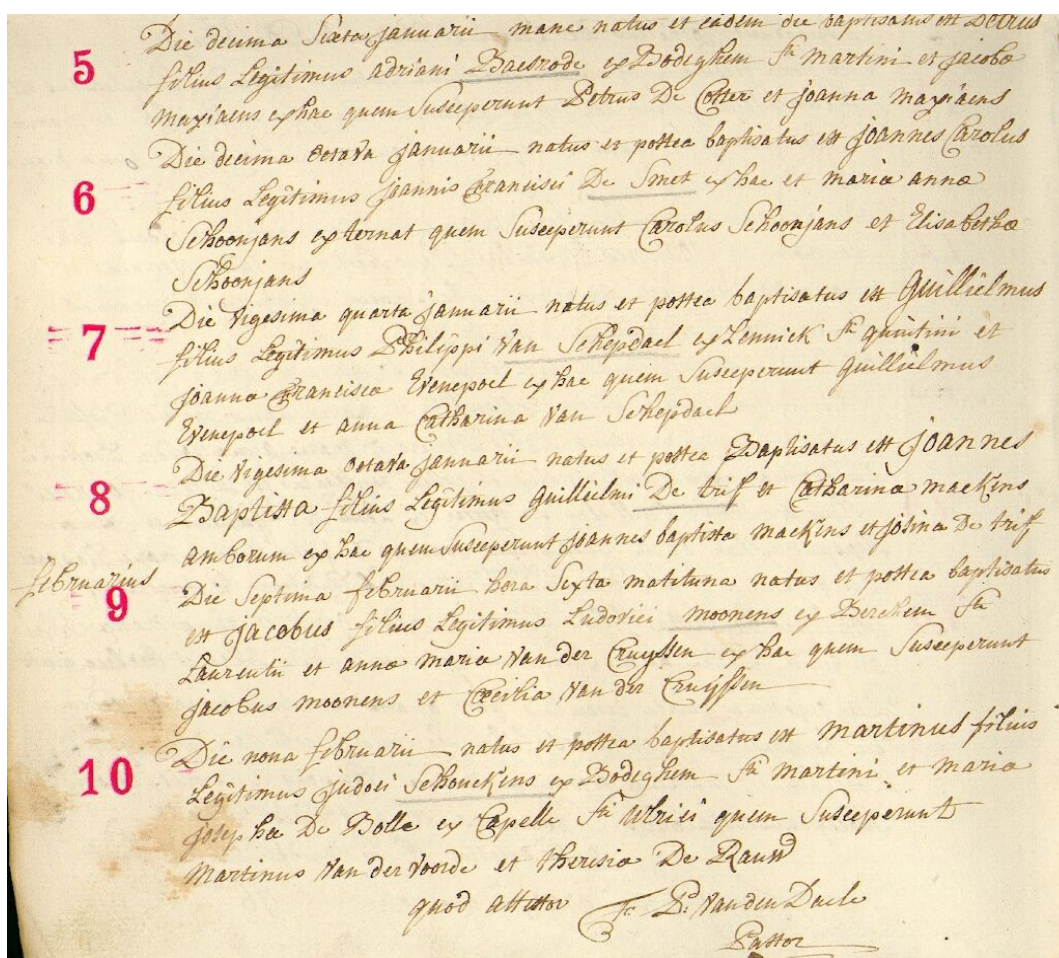 Die decima Sexta januarii mane natus et eadem die baptisatus est Petrus
5 filius Legitimus adriani Baesrode ex Bodeghem Sti Martini et jacobæ
maxiaens ex hac quem Susceperunt Petrus De Cotter et joanna maxiaens
Die decima octava januarii natus et postea baptisatus est joannes Carolus
6 filius Legitimus joannis Francisci De Smet ex hac et mariæ annæ
Schoonjans ex ternat quem Susceperunt Carolus Schoonjans et Elisabetha
Schoonjans
Die vigesima quarta januarii natus et postea baptisatus est Guillielmus
7 filius Legitimus Philippi Van Schepdael ex Lennick Sti quintini et
joannæ Franciscæ Evenepoel ex hac quem Susceperunt Guillielmus
Evenepoel et anna Catharina Van Schepdael
Die vigesima octava januarii natus et postea Baptisatus est joannes
8 Baptista filius Legitimus Guillielmi De trif et Catharinæ mackins
amborum ex hac quem Susceperunt joannes baptista mackins et josina De trif
februarius
Die Septima februarii hora Sexta matituna natus et postea baptisatus
9 est jacobus filius Legitimus Ludovici moonens ex Berchem Sti
Laurentii et annæ mariæ Van der Cruyssen ex hac quem Susceperunt
jacobus moonens et Cæcilia Van der Cruijssen
Die nona februarii natus et postea baptisatus est martinus filius
10 Legitimus judoci Schouckens ex Bodeghem Sti martini et mariæ
josephæ De Bolle ex Capelle Sti Ulrici quem Susceperunt
Martinus Van der Voorde et theresia De Rauw
quod attestor Van den Daele
Pastor